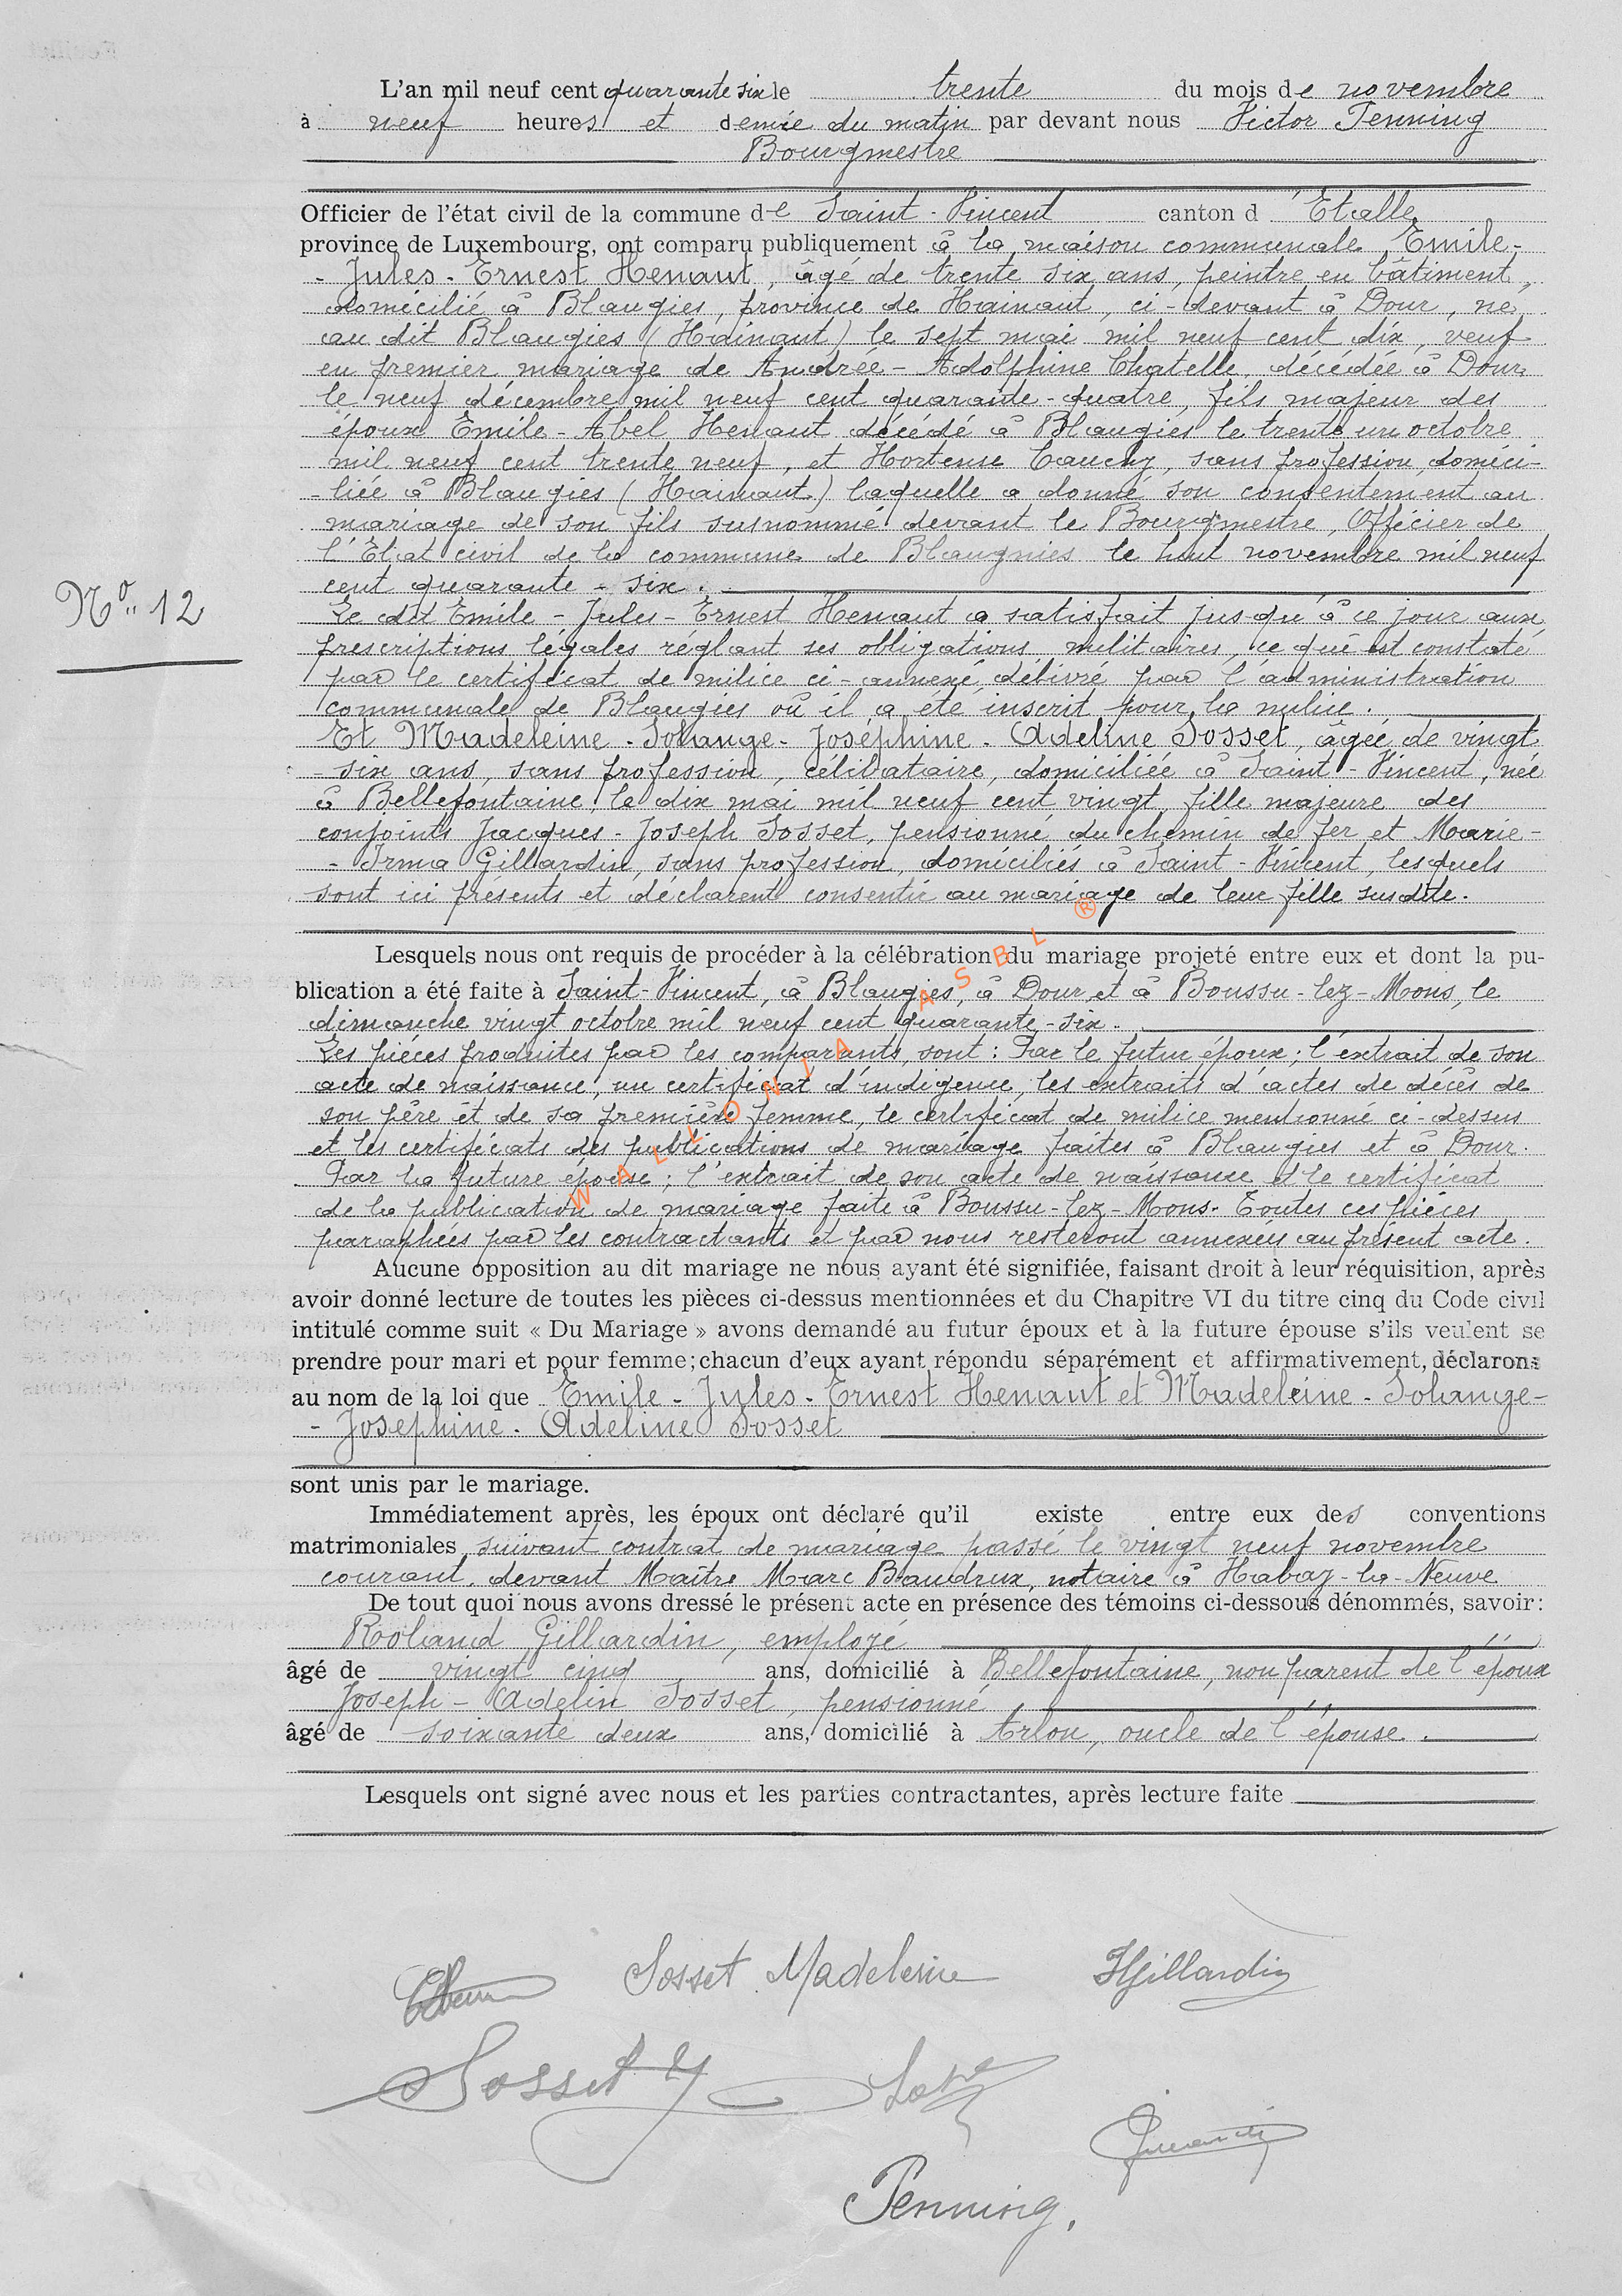 L'an mil neuf cent quarante six le trente du mois de novembre
à neuf heures et demie du matin par devant nous Victor Penning
Bourgmestre
Officier de l'état civil de la commune de Saint-Vincent canton d'Etalle,
province de Luxembourg, ont comparu publiquement à la maison communale, Emile-
- Jules - Ernest Henaut, âgé de trente six ans, peintre en bâtiment,
domicilié à Blaugies, province de Hainaut, ci-devant à Dour, né
au dit Blaugies (Hainaut) le sept mai mil neuf cent dix, veuf
en premier mariage de Andrée - Adolphine Chatelle, décédée à Dour,
le neuf décembre mil neuf cent quarante-quatre, fils majeur des
époux Emile - Abel Henaut, décédé à Blaugies le trente un octobre
mil neuf cent trente neuf, et Hortense Cauchy, sans profession, domici-
- liée à Blaugies (Hainaut) laquelle a donné son consentement au
mariage de son fils susnommé devant le Bourgmestre, Officier de
l'Etat civil de la commune de Blaugnies le huit novembre mil neuf
cent quarante - six.
N° 12
Le dit Emile - Jules - Ernest Henaut a satisfait jusqu'à ce jour aux
prescriptions légales réglant ses obligations militaires, ce qui est constaté
par le certificat de milice ci-annexé, délivré par l'administration
communale de Blaugies où il a été inscrit pour la milice.
Et Madeleine - Solange - Joséphine - Adeline Sosset, âgée de vingt
- six ans, sans profession, célibataire, domiciliée à Saint-Vincent, née
à Bellefontaine le dix mai mil neuf cent vingt, fille majeure des
conjoints Jacques - Joseph Sosset, pensionné du chemin de fer et Marie-
- Irma Gillardin, sans profession, domiciliés à Saint-Vincent, lesquels
sont ici présents et déclarent consentir au mariage de leur fille susdite.
Lesquels nous ont requis de procéder à la célébration du mariage projeté entre eux et dont la pu-
blication a été faite à Saint-Vincent, à Blaugies, à Dour et à Boussu-lez-Mons, le
dimanche vingt octobre mil neuf cent quarante-six.
Les pièces produites par les comparants, sont : Par le futur époux ; l'extrait de son
acte de naissance, un certificat d'indigence, les extraits d'actes de décès de
son père et de sa première femme, le certificat de milice mentionné ci-dessus
et les certificats des publications de mariage faites à Blaugies et à Dour.
Par la future épouse ; l'extrait de son acte de naissance et le certificat
de la publication de mariage faite à Boussu-lez-Mons. Toutes ces pièces
paraphées par les contractants et par nous resteront annexées au présent acte.
WALLONIA ASBL ®
Aucune opposition au dit mariage ne nous ayant été signifiée, faisant droit à leur réquisition, après
avoir donné lecture de toutes les pièces ci-dessus mentionnées et du Chapitre VI du titre cinq du Code civil
intitulé comme suit « Du Mariage » avons demandé au futur époux et à la future épouse s'ils veulent se
prendre pour mari et pour femme; chacun d'eux ayant répondu séparément et affirmativement, déclarons
au nom de la loi que Emile - Jules - Ernest Henaut et Madeleine - Solange-
- Josephine - Adeline Sosset
sont unis par le mariage.
Immédiatement après, les époux ont déclaré qu'il existe entre eux des conventions
matrimoniales suivant contrat de mariage passé le vingt neuf novembre
courant, devant Maître Marc Baudrux, notaire à Habay-la-Neuve
De tout quoi nous avons dressé le présent acte en présence des témoins ci-dessous dénommés, savoir :
Roland Gillardin, employé
âgé de vingt cinq ans, domicilié à Bellefontaine, non parent de l'époux
Joseph - Adelin Sosset, pensionné
âgé de soixante deux ans, domicilié à Arlon, oncle de l'épouse.
Lesquels ont signé avec nous et les parties contractantes, après lecture faite
Sosset Madeleine Gillardin
Sosset J
Penning.